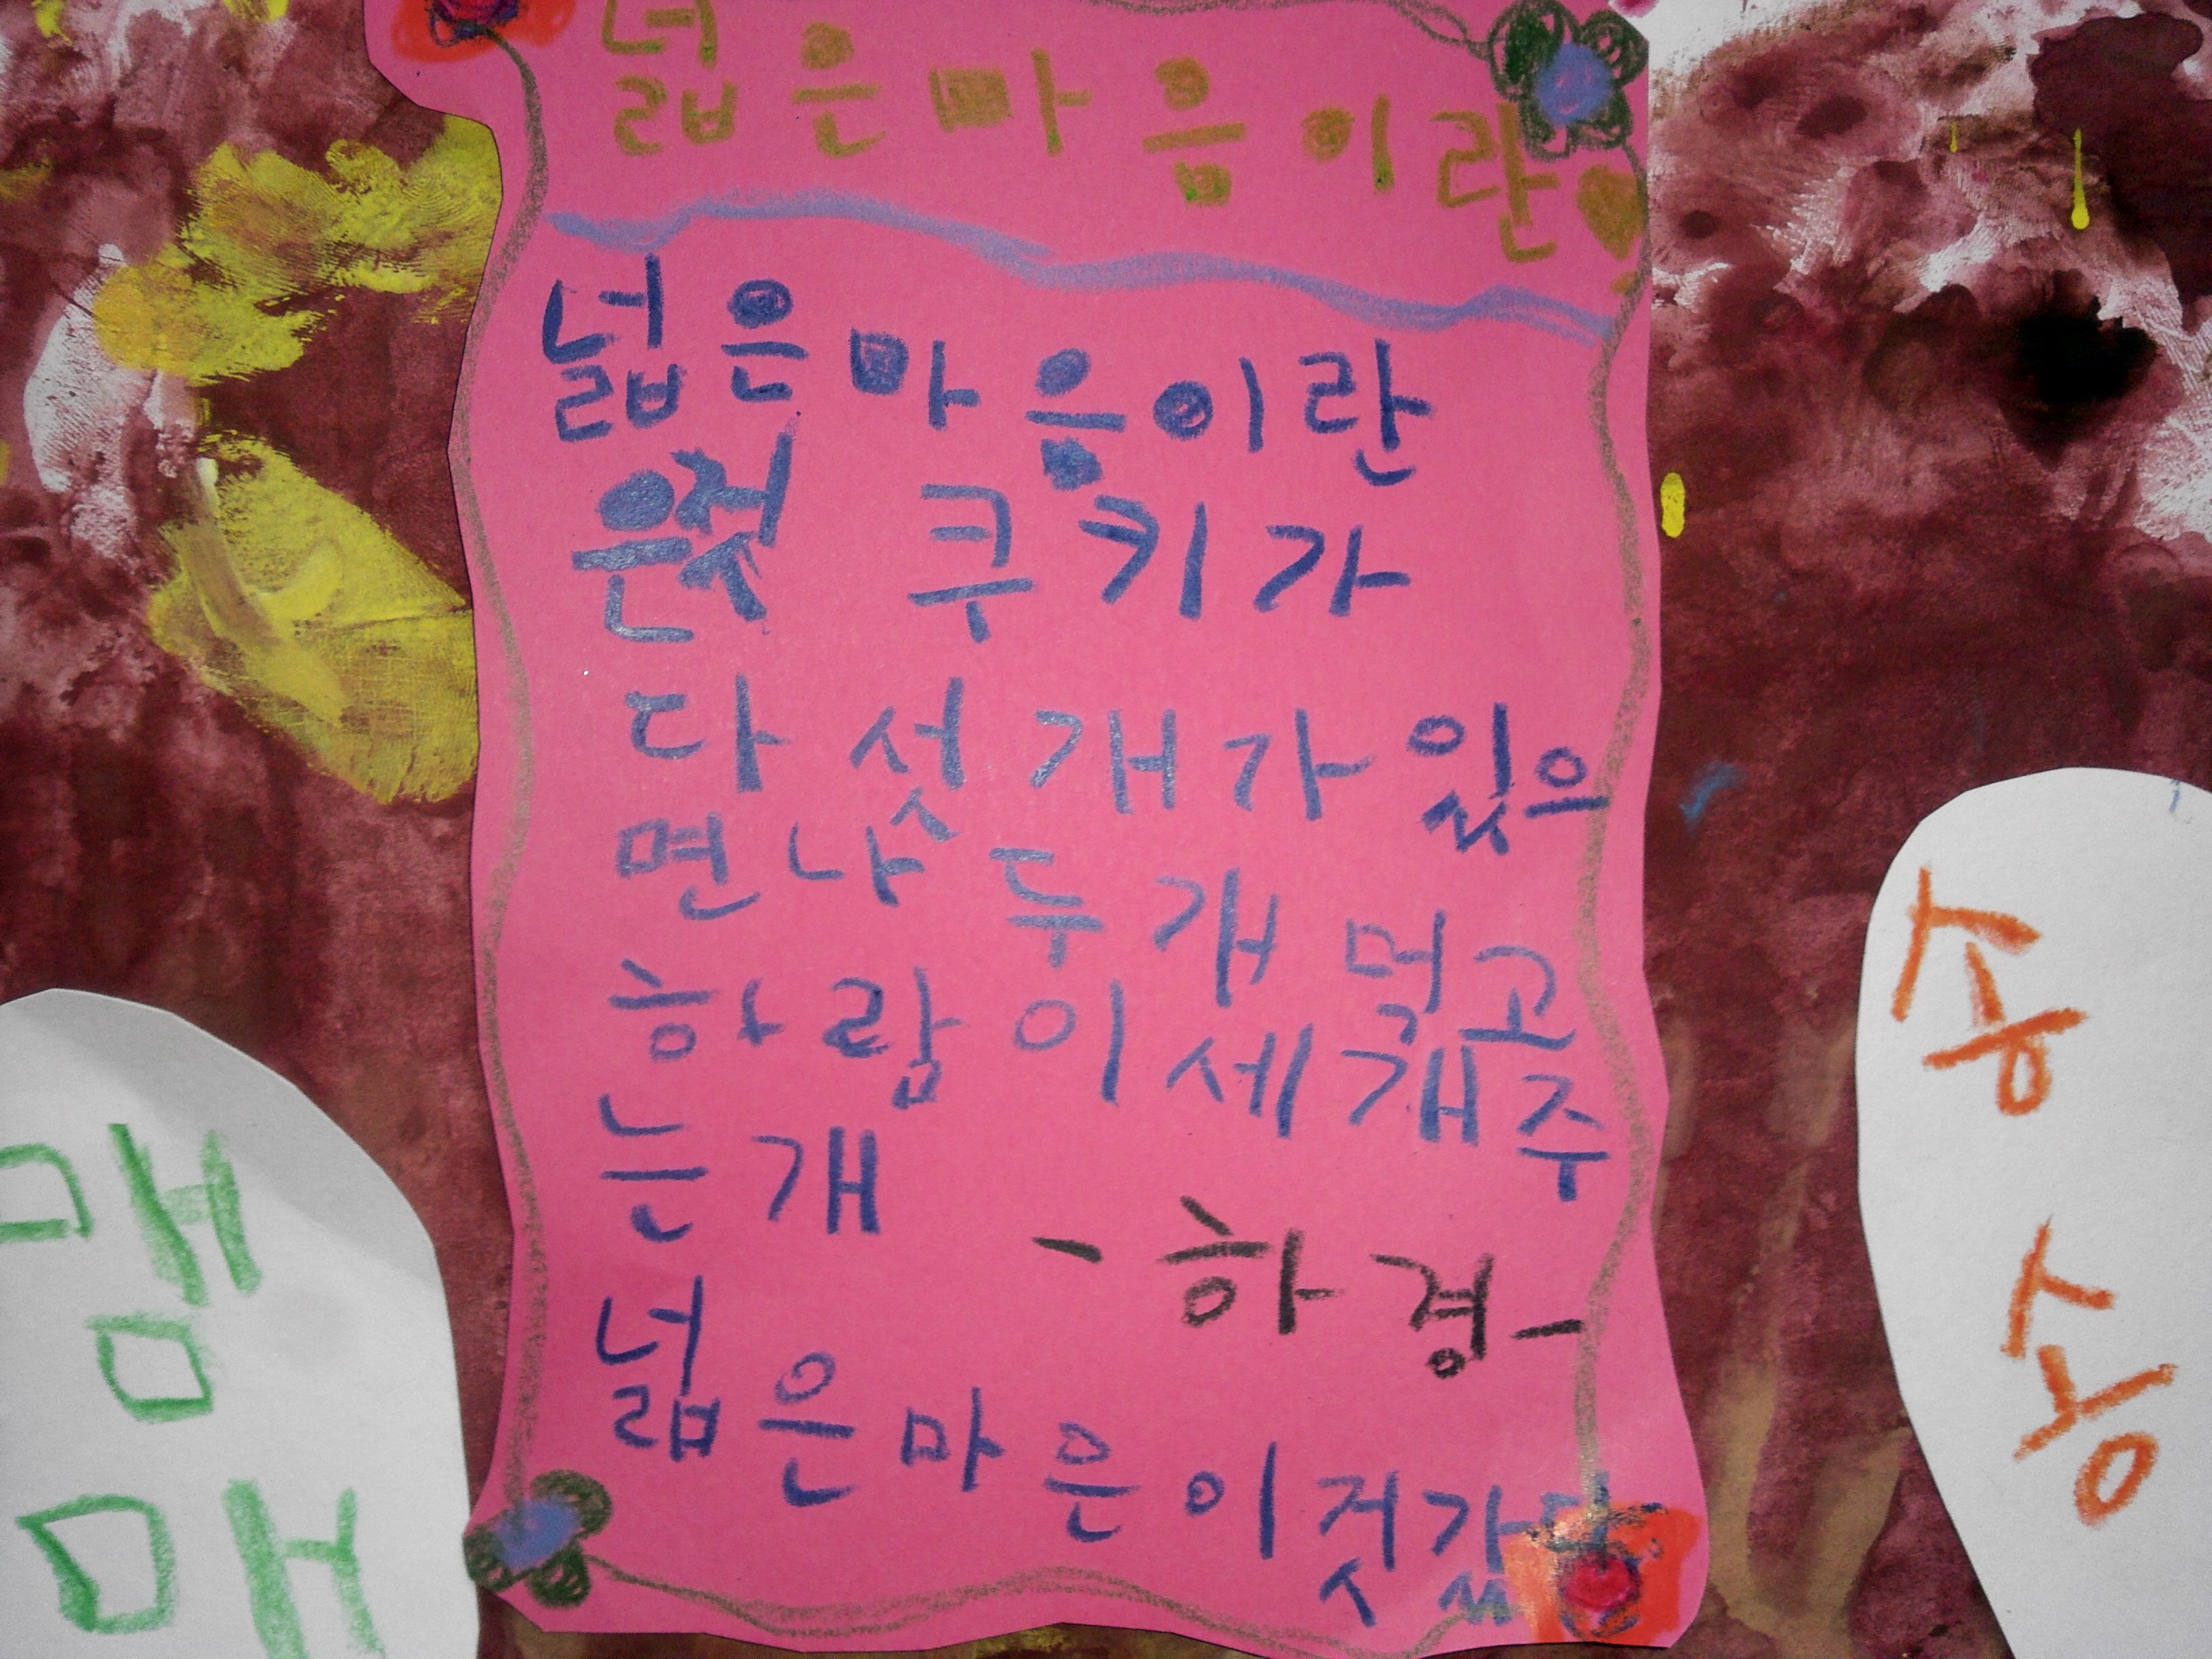 넓은마음이란
넓은마음이란
은젓 쿠키가
다섯개가있으
면 나 두개 먹고
하랍이세개주
는개
-하경-
넓은마은이젓갔다
맴
매
송
송